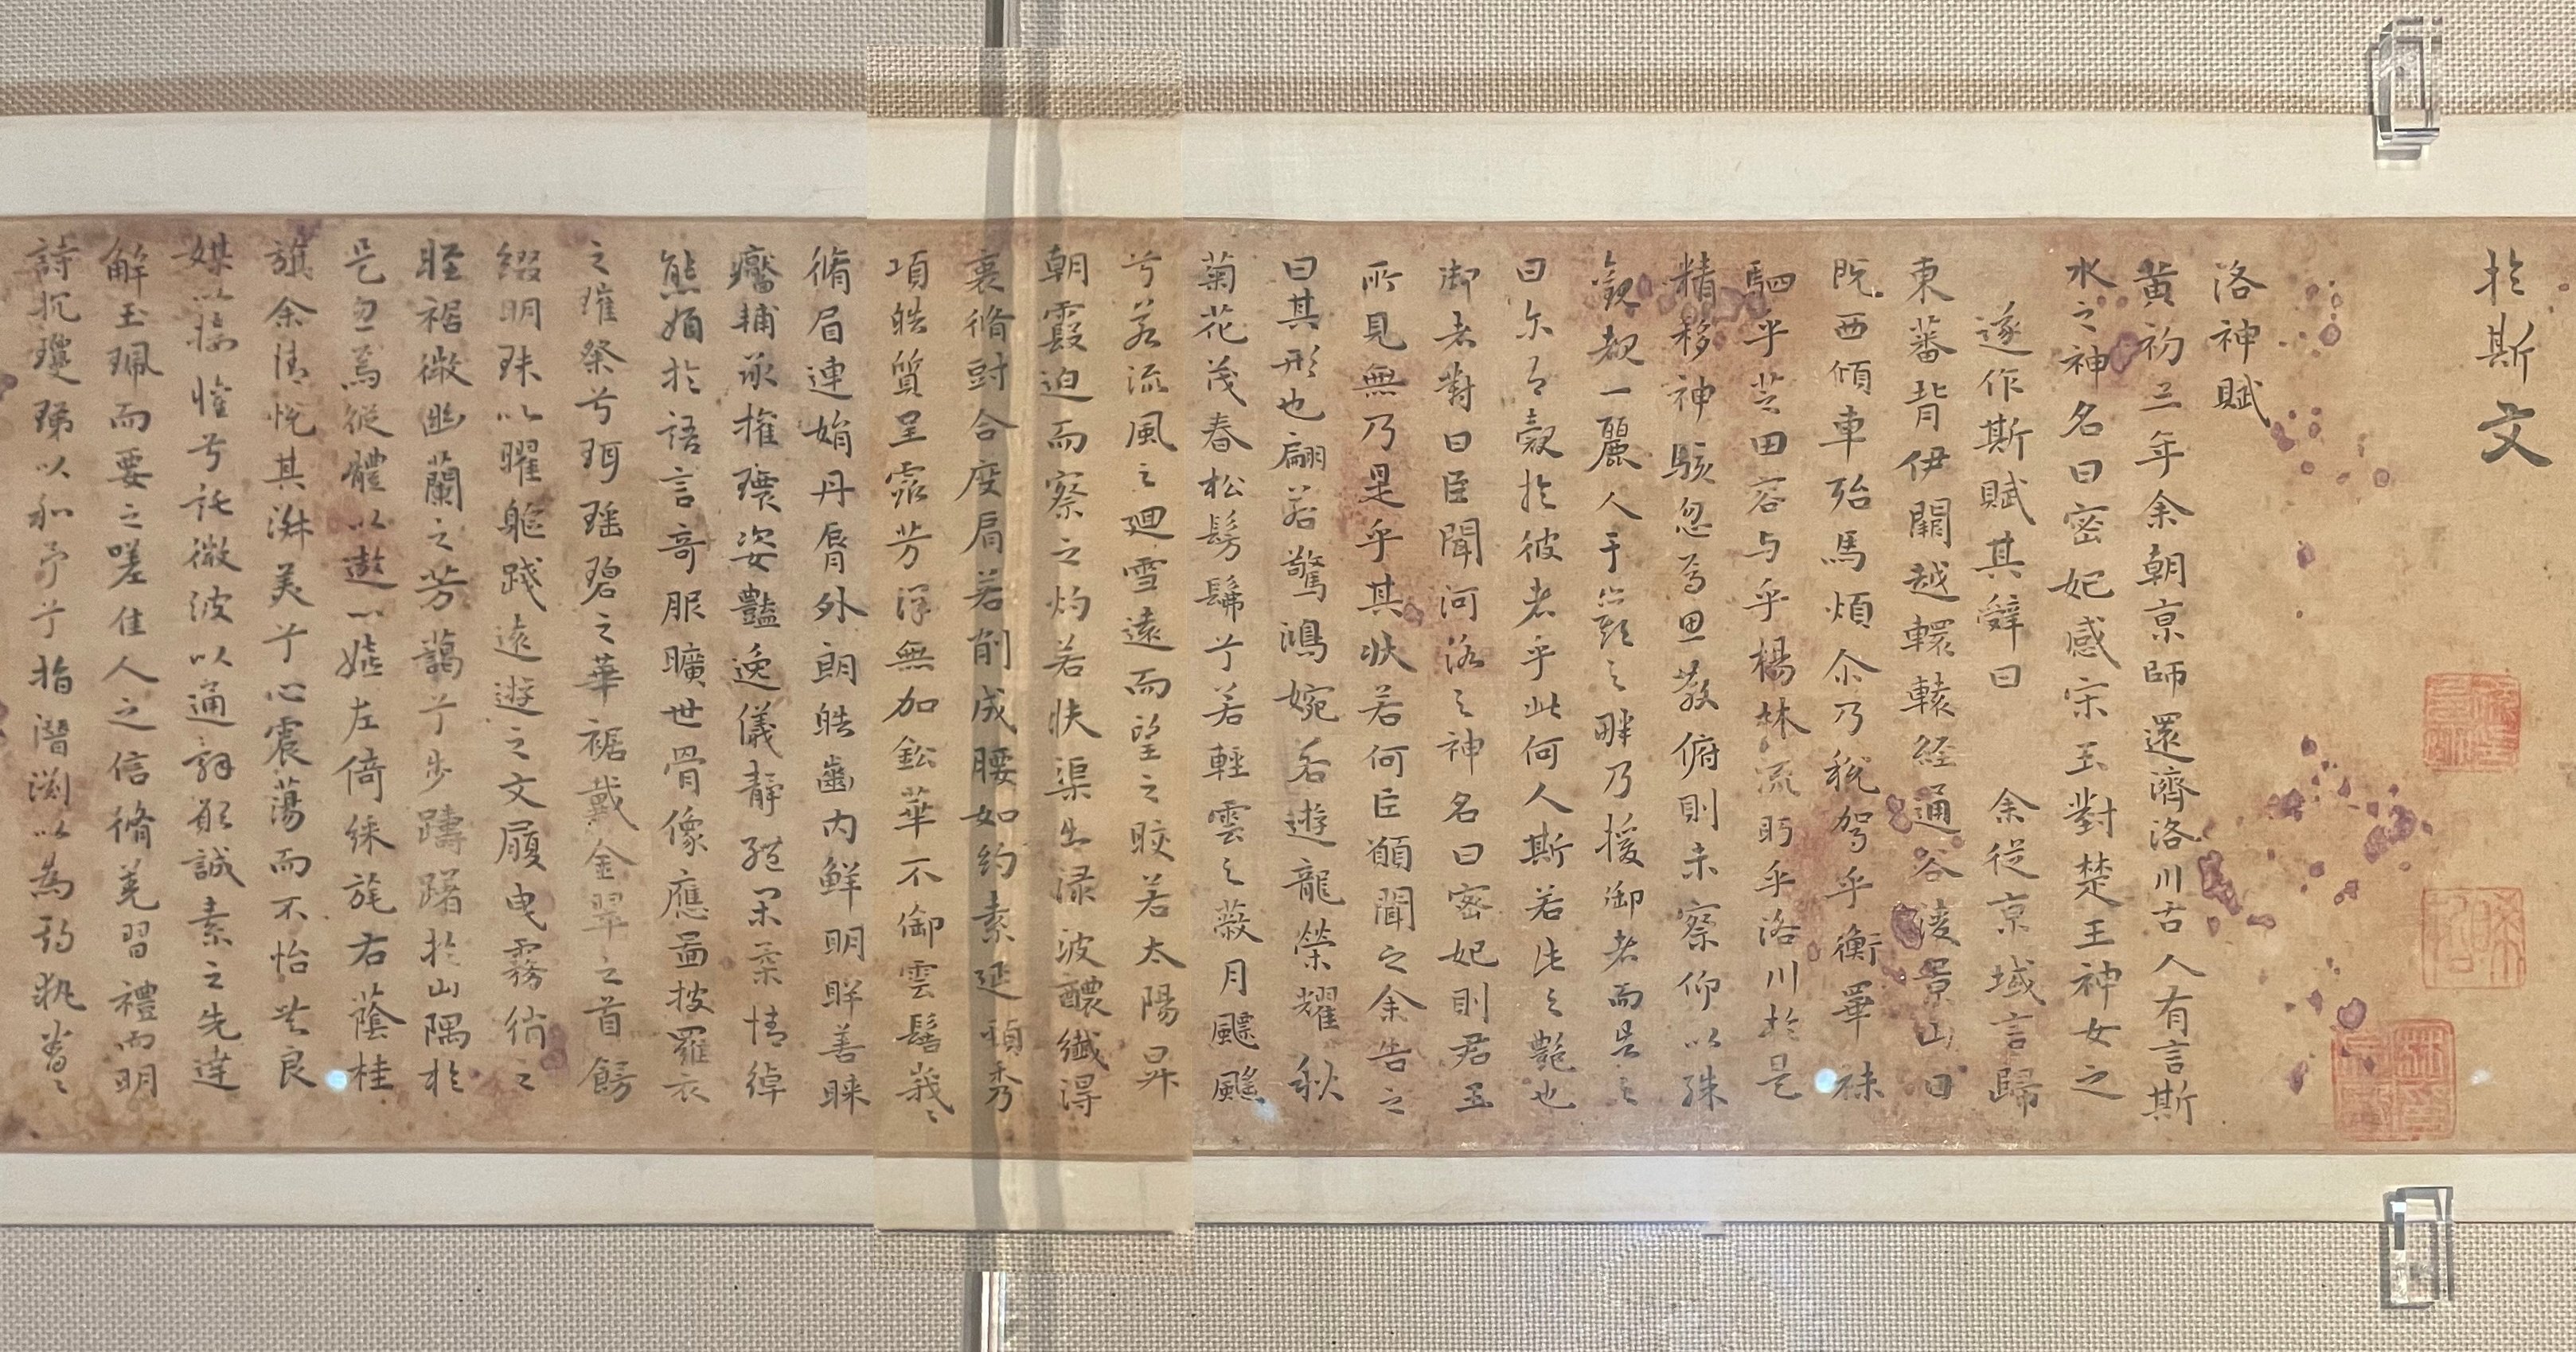 於斯文
洛神賦
黃初三年余朝京師還濟洛川古人有言斯
水之神名曰宓妃感宋玉對楚王神女之
遂作斯賦其辭曰 余從京域言歸
東蕃背伊闕越轘轅經通谷陵景山日
既西傾車殆馬煩尒乃稅駕乎衡皋秣
駟乎芝田容与乎楊林流眄乎洛川於是
精移神駭忽焉思散俯則未察仰以殊
觀覩一麗人于巖之畔乃援御者而告之
曰尔有觀於彼者乎此何人斯若此之艷也
御者對曰臣聞河洛之神名曰宓妃則君王
所見無乃是乎其狀若何臣願聞之余告之
曰其形也翩若驚鴻婉若遊龍榮耀秋
菊花茂春松髣髴兮若輕雲之蔽月飄颻
兮若流風之迴雪遠而望之皎若太陽昇
朝霞迫而察之灼若
渠出淥波醲纖得
衷脩
合度肩若削成腰如約素延頸秀
項皓質呈露芳澤無加鉛華不御雲髻峩〻
脩眉連娟丹脣外朗皓齒內鮮明眸善睞
靨輔承權瓌姿豔逸儀靜體閑柔情綽
態媚於語言奇服曠世骨像應圖披羅衣
之璀粲兮珥瑤碧之華裾戴金翠之首餝
綴明珠以曜軀踐遠遊之文履曳霧綃之
輕裾微幽蘭之芳藹兮步躊躇於山隅於
是忽焉縱體以遨以嬉左倚綵旄右蔭桂
旗余情悅其淑美兮心震蕩而不怡無良
媒以接懽兮託微波以通辭願誠素之先達
解玉珮而要之嗟佳人之信脩羌習禮而明
詩抗瓊珶以和予兮指潛淵以為期執眷〻